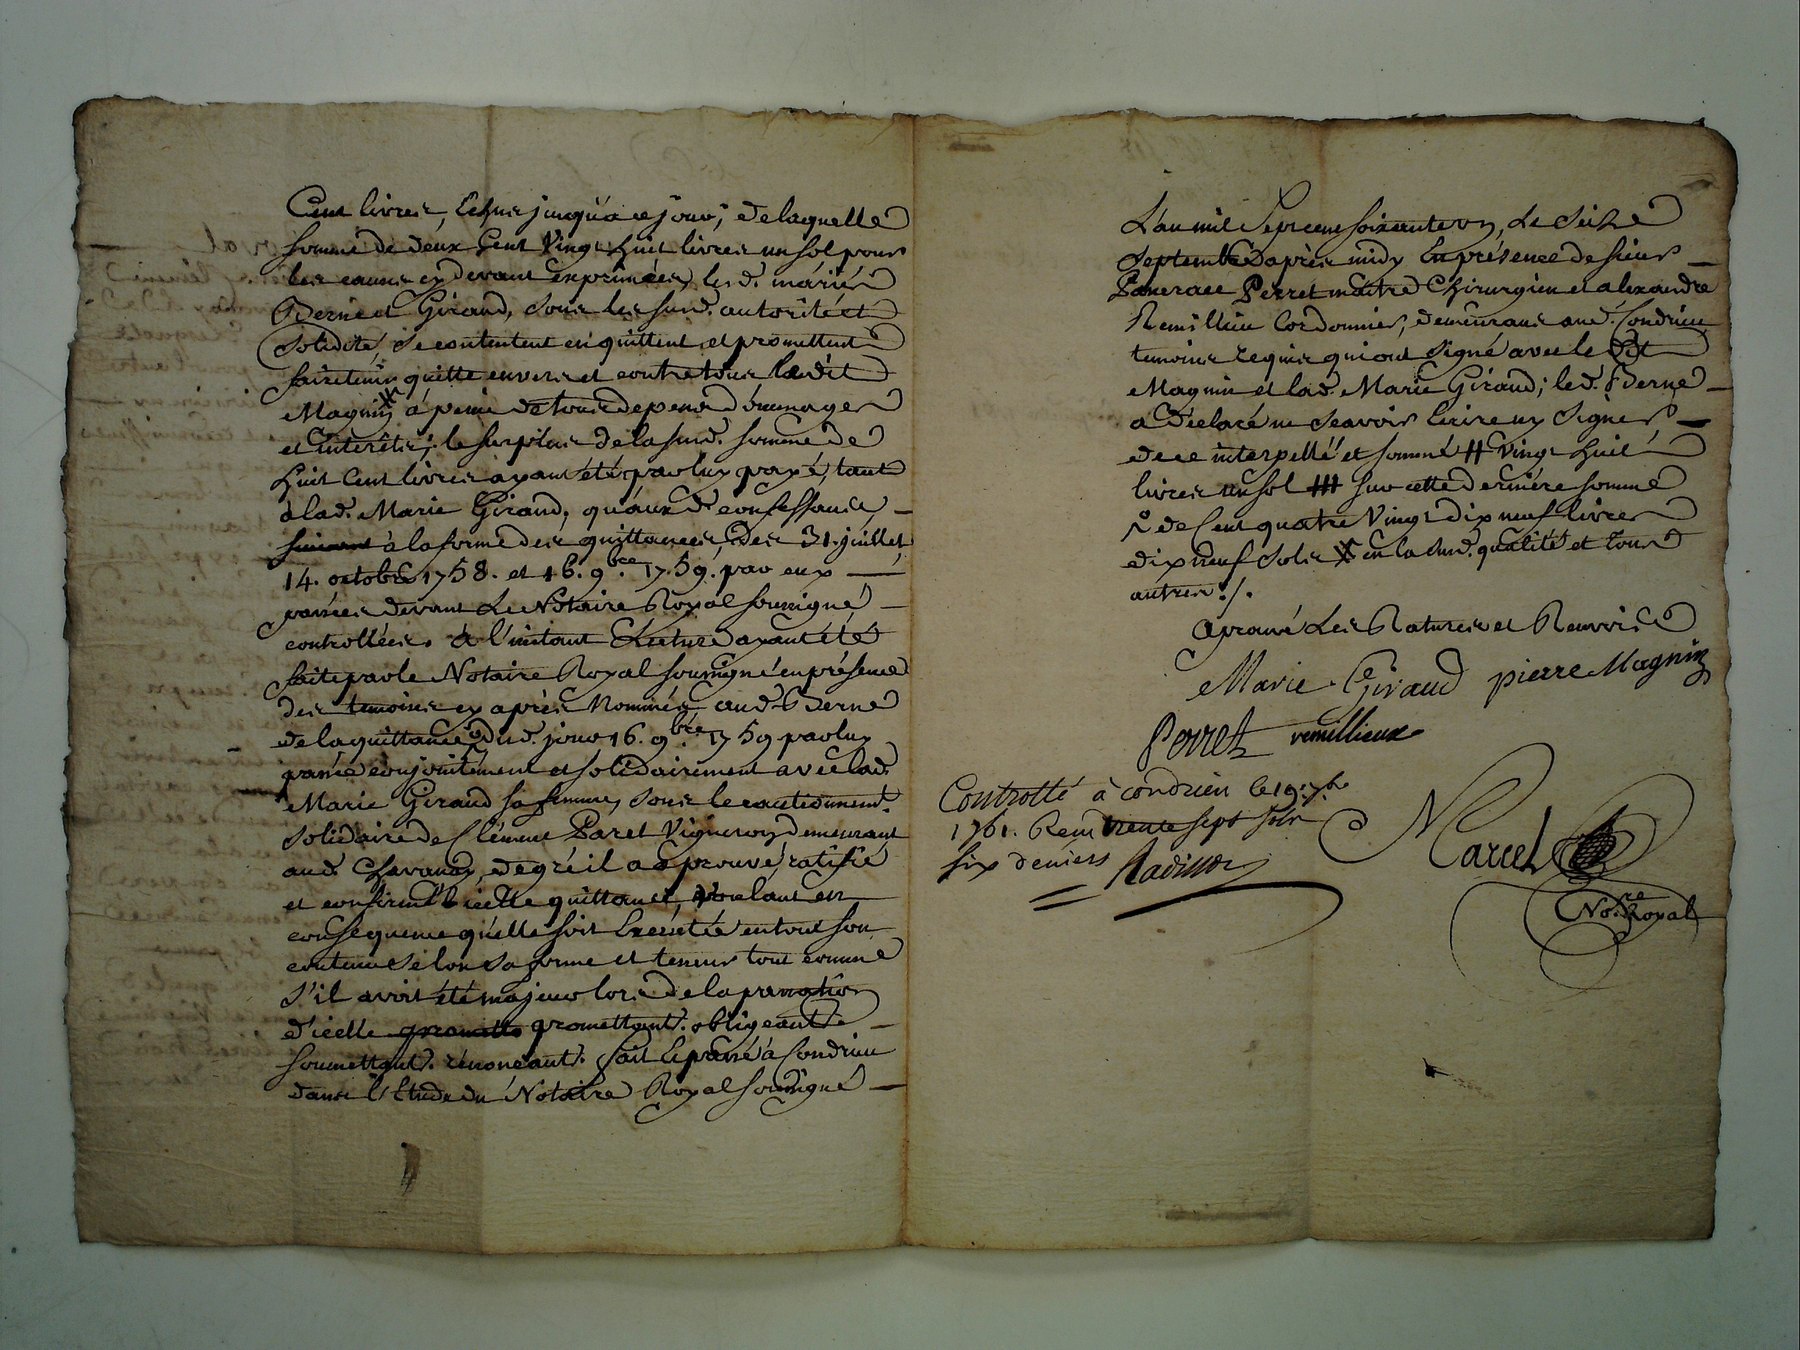 Cent livres, Echus jusqu'a ce jour; de laquelle
somme de deux Cent Vingt huit livres un sol pour
les causes cy devant exprimées, les d. mariés
Berne et Giraud, sous les susd. autorité et
solidité, se contentent en quittent et promettent
faire tenir quitte envers et contre tous ledit
Magnin, à peine de tous depens dommages
et interêts; le surplus de la susd. somme de
huit Cent livres ayant été par luy payé, tant
à lad. Marie Giraud, qu'aux d. confessants
à la forme des quittances, des 31. juillet,
14. octobre 1758. et 16. 9.bre 1759. par eux
passées devant Le Notaire Royal soussigné
controllées. à l'instant Lecture ayant été
faite par le Notaire Royal soussigné en présence
des temoins cy après Nommés, aud. Berne
de la quittance dud. jour 16. 9.bre 1759 par luy
passée conjointement et solidairement avec lad.
Marie Giraud sa femme, sous le cautionnemt.
solidaire de Clément Paret Vigneron demeurant
aud. Chavanay, de gré il a approuvé, ratifié
et confirmé icelle quittance, voulant en
consequence qu'elle soit Executée en tout son
contenu selon sa forme et teneur tout comme
s'il avoit été majeur lors de la passation
d'icelle promettant. obligeant.
soumettant. rénonçant. fait Et passé à Condrieu
dans l'Etude du Notaire Royal soussigné
L'an mil Sept cent soixante un, Le Seize
Septembre après midy En présence de sieur
Pancrace Perret maitre Chirurgien et alexandre
Remillieu Cordonnier, demeurans aud. Condrieu
temoins requis qui ont signé avec le dit
Magnin et lad. Marie Giraud; led. Berne
a déclaré ne sçavoir Ecrire ny Signer
de ce interpellé et sommé # Vingt huit
livres un sol ### sur cette derniére somme
de Cent quatre Vingt dix neuf livres
dix neuf sols X en la susd. qualité et tous
autres ./.
aprouvé Les Ratures et Renvois
Marie Giraud pierre Magnin
Perret remillieux
Controllé à condrieu le 19. 7.bre
1761. Reçu trente sept sols
six deniers
Marcel
No.re Royal